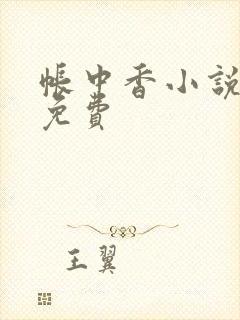 帳中香小說
免費
王翼